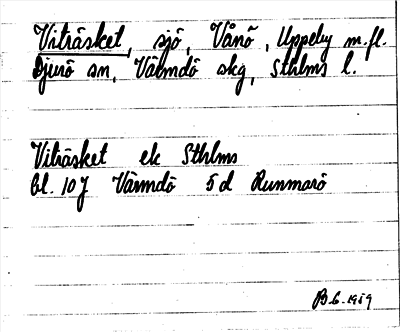 Viträsket, sjö, Vånö, Uppeby m.fl.
Djurö sn, Värmdö skg, Sthlms l.
Viträsket ek Sthlms
bl. 10 J Värmdö 5 d Runmarö
B.G. 1959